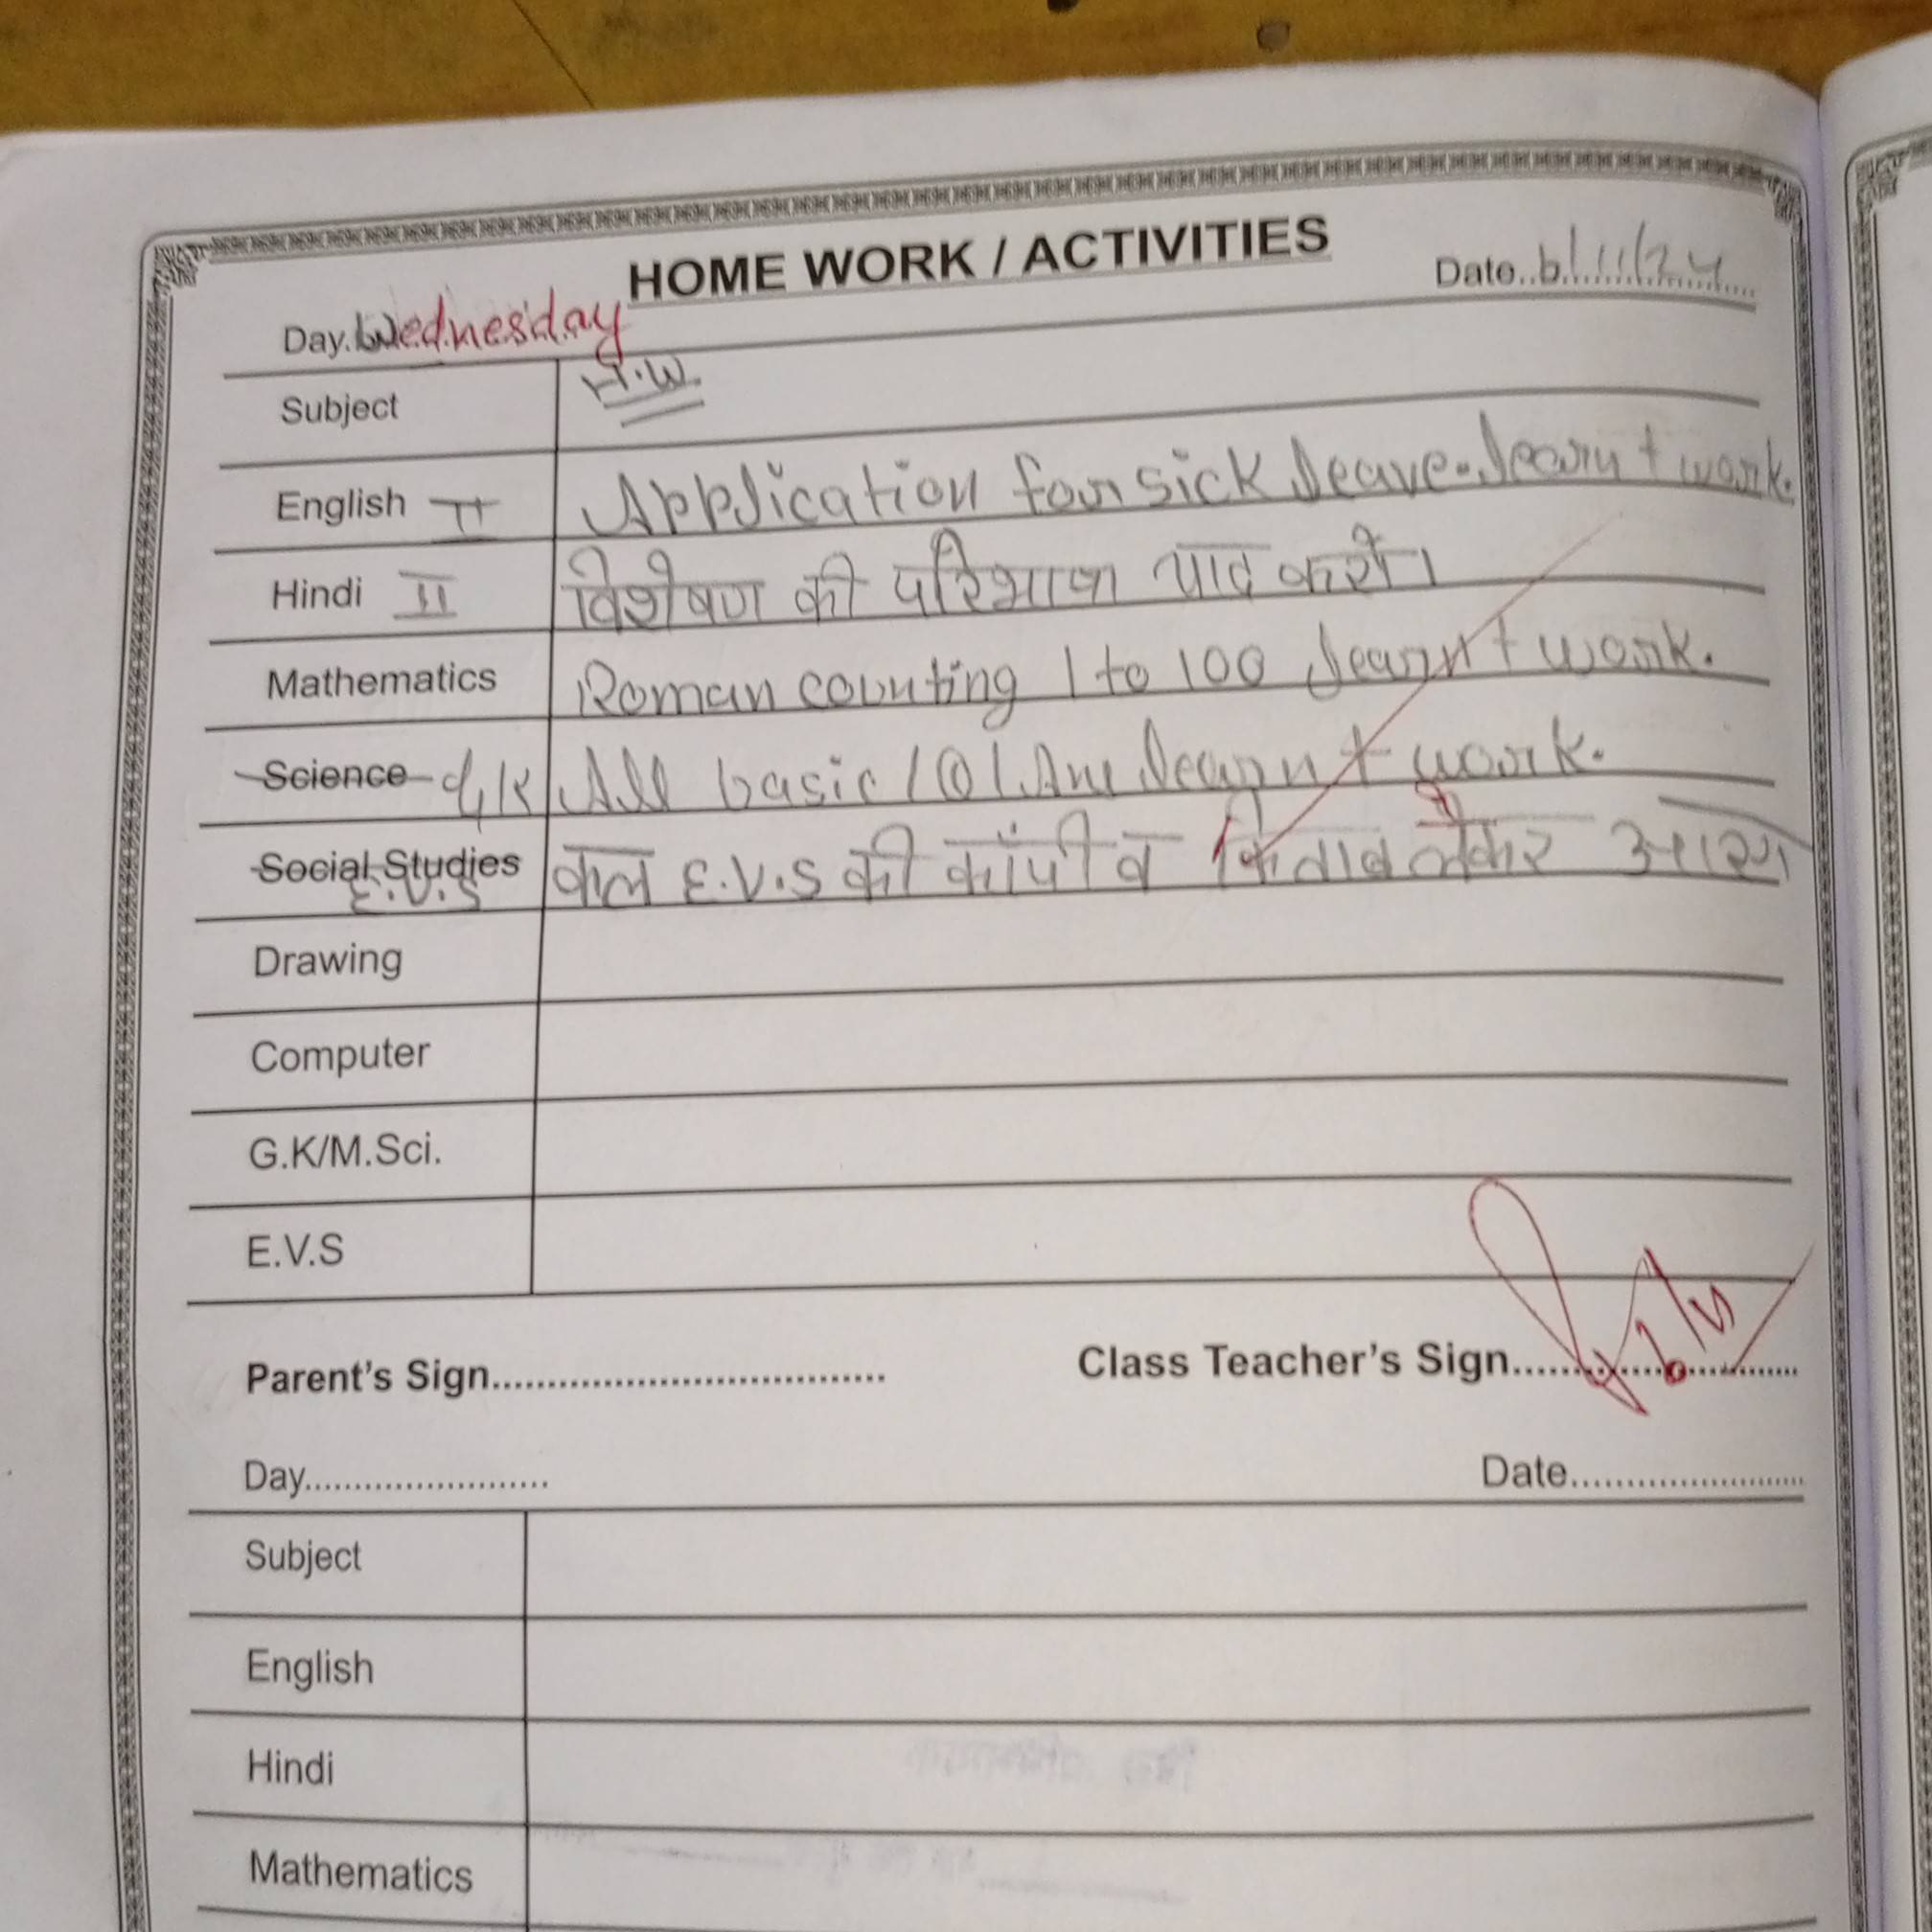 HOME WORK / ACTIVITIES
Day. Wednesday Date.. 6/11/24
Subject H.W.
English II Application for sick leave. learn + work.
Hindi II विशेषण की परिभाषा याद करो।
Mathematics Roman counting 1 to 100 learn + work.
Science G.K All basic 101 learn + work.
Social Studies E.V.S कल E.V.S की कॉपी व किताब लेकर
Drawing
Computer
G.K/M.Sci.
E.V.S
Parent's Sign................................... Class Teacher's Sign..........................
Day....................... Date......................
Subject
English
Hindi
Mathematics